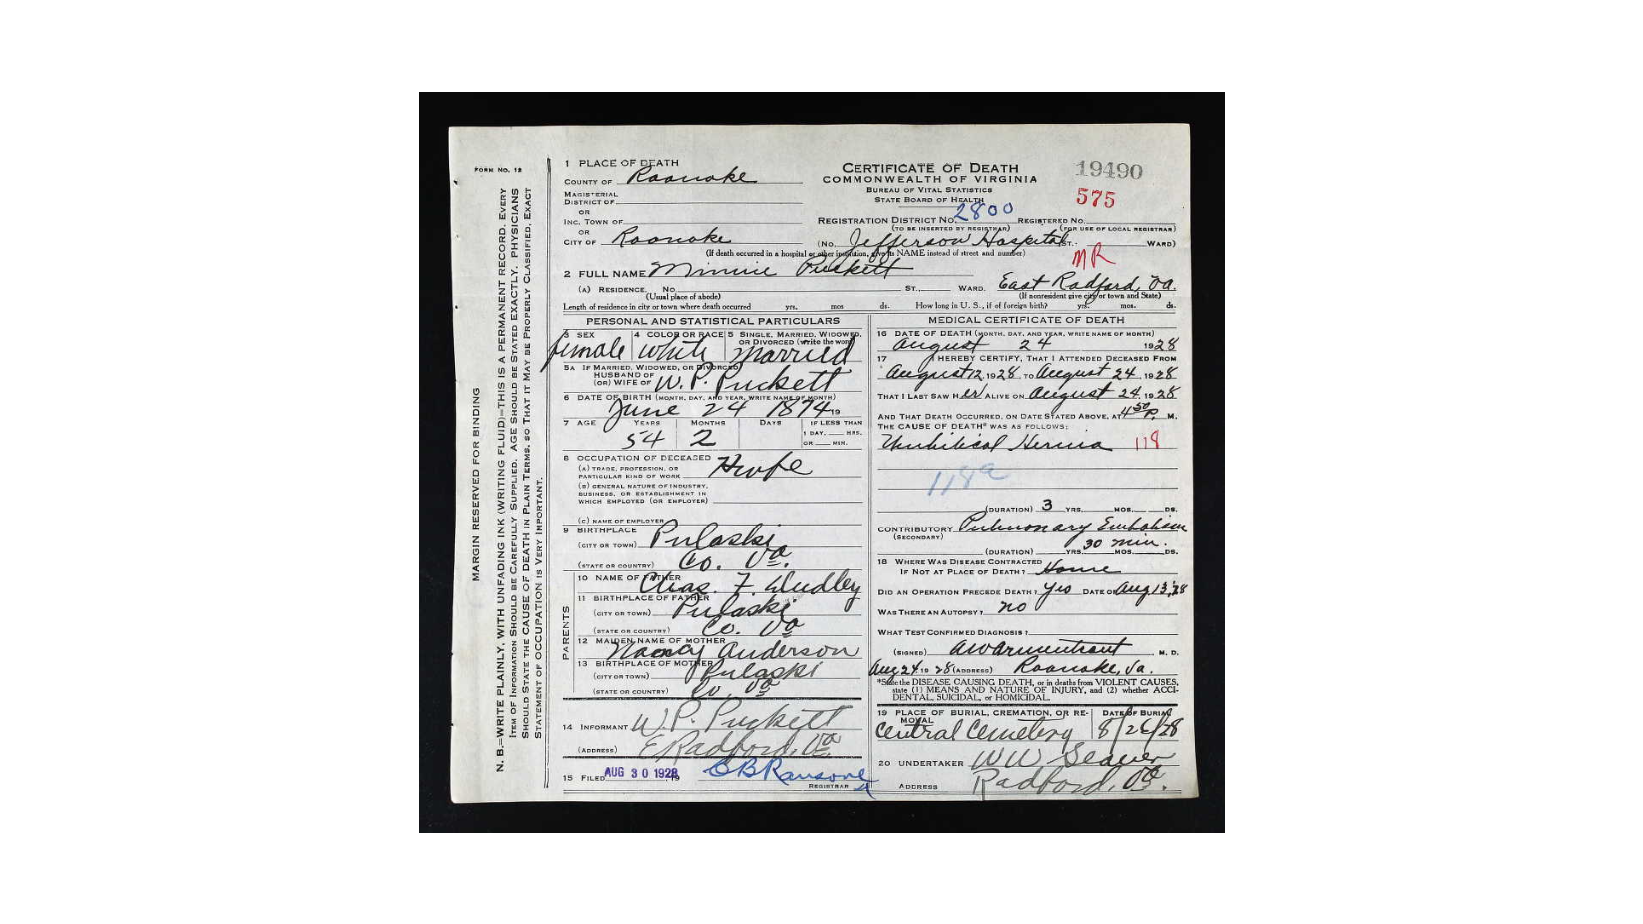 FORM No. 12
MARGIN RESERVED FOR BINDING
N. B.—WRITE PLAINLY, WITH UNFADING INK (WRITING FLUID)—THIS IS A PERMANENT RECORD. EVERY
ITEM OF INFORMATION SHOULD BE CAREFULLY SUPPLIED. AGE SHOULD BE STATED EXACTLY. PHYSICIANS
SHOULD STATE THE CAUSE OF DEATH IN PLAIN TERMS, SO THAT IT MAY BE PROPERLY CLASSIFIED. EXACT
STATEMENT OF OCCUPATION IS VERY IMPORTANT.
1 PLACE OF DEATH
COUNTY OF Roanoke
MAGISTERIAL
DISTRICT OF
OR
INC. TOWN OF
OR
CITY OF Roanoke
CERTIFICATE OF DEATH
COMMONWEALTH OF VIRGINIA
BUREAU OF VITAL STATISTICS
STATE BOARD OF HEALTH
19490
575
REGISTRATION DISTRICT NO. 2800 REGISTERED NO.
(TO BE INSERTED BY REGISTRAR) (FOR USE OF LOCAL REGISTRAR)
(No. Jefferson Hospital ST.- WARD)
(If death occurred in a hospital or other institution, give its NAME instead of street and number)
MR
2 FULL NAME Minnie Puckett
(A) RESIDENCE. No. ST., WARD. East Radford, Va.
(Usual place of abode) (If nonresident give city or town and State)
Length of residence in city or town where death occurred yrs. mos ds. How long in U. S., if of foreign birth? yrs. mos. ds.
PERSONAL AND STATISTICAL PARTICULARS
3 SEX female
4 COLOR OR RACE white
5 SINGLE, MARRIED, WIDOWED, OR DIVORCED (write the word) married
5A IF MARRIED, WIDOWED, OR DIVORCED
HUSBAND OF
(OR) WIFE OF W. P. Puckett
6 DATE OF BIRTH (MONTH, DAY, AND YEAR, WRITE NAME OF MONTH)
June 24 1874 19
7 AGE YEARS MONTHS DAYS IF LESS THAN
54 2 1 DAY, HRS.
OR MIN.
8 OCCUPATION OF DECEASED Hwife
(A) TRADE, PROFESSION, OR
PARTICULAR KIND OF WORK
(B) GENERAL NATURE OF INDUSTRY,
BUSINESS, OR ESTABLISHMENT IN
WHICH EMPLOYED (OR EMPLOYER)
(C) NAME OF EMPLOYER
9 BIRTHPLACE
(CITY OR TOWN) Pulaski
(STATE OR COUNTRY) Co. Va.
PARENTS
10 NAME OF FATHER Chas. F. Dudley
11 BIRTHPLACE OF FATHER
(CITY OR TOWN) Pulaski
(STATE OR COUNTRY) Co. Va
12 MAIDEN NAME OF MOTHER
Nancy Anderson
13 BIRTHPLACE OF MOTHER
(CITY OR TOWN) Pulaski
(STATE OR COUNTRY) Co. Va
14 INFORMANT W. P. Puckett
(ADDRESS) E Radford, Va
15 FILED AUG 30 1928, 19 CB Ransone
REGISTRAR
MEDICAL CERTIFICATE OF DEATH
16 DATE OF DEATH (MONTH, DAY, AND YEAR, WRITE NAME OF MONTH)
August 24 1928
17 I HEREBY CERTIFY, THAT I ATTENDED DECEASED FROM
August 12, 1928, TO August 24, 1928
THAT I LAST SAW H er ALIVE ON August 24, 1928
AND THAT DEATH OCCURRED, ON DATE STATED ABOVE, AT 4 50 P. M.
THE CAUSE OF DEATH* WAS AS FOLLOWS:
Umbilical Hernia 118
118a
(DURATION) 3 YRS. MOS. DS.
CONTRIBUTORY Pulmonary Embolism
(SECONDARY) 30 min.
(DURATION) YRS MOS. DS.
18 WHERE WAS DISEASE CONTRACTED
IF NOT AT PLACE OF DEATH? Home
DID AN OPERATION PRECEDE DEATH? Yes DATE OF Aug 13, 28
WAS THERE AN AUTOPSY? no
WHAT TEST CONFIRMED DIAGNOSIS?
(SIGNED) , M. D.
Aug 24 19 28 (ADDRESS) Roanoke, Va.
*State the DISEASE CAUSING DEATH, or in deaths from VIOLENT CAUSES,
state (1) MEANS AND NATURE OF INJURY, and (2) whether ACCI-
DENTAL, SUICIDAL, or HOMICIDAL.
19 PLACE OF BURIAL, CREMATION, OR RE-MOVAL DATE OF BURIAL
Central Cemetery 8/26/28
20 UNDERTAKER WW Seaver
ADDRESS Radford, Va.